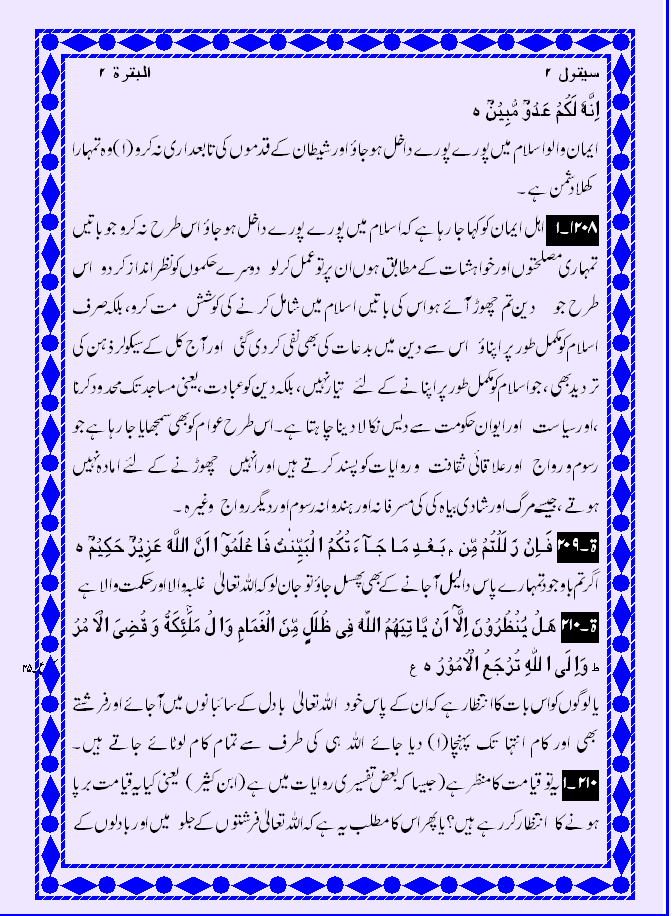 سیقول ۲ البقرۃ ۲
اِنَّهٗ لَكُمْ عَدُوٌّ مُّبِيْنٌ ه
ایمان والو اسلام میں پورے پورے داخل ہو جاؤ اور شیطان کے قدموں کی تابعداری نہ کرو (۱) وہ تمہارا
کھلا دشمن ہے۔
۲۰۸۔۱ اہل ایمان کو کہا جا رہا ہے کہ اسلام میں پورے پورے داخل ہو جاؤ اس طرح نہ کرو جو باتیں
تمہاری مصلحتوں اور خواہشات کے مطابق ہوں ان پر تو عمل کر لو دوسرے حکموں کو نظر انداز کر دو اس
طرح جو دین تم چھوڑ آئے ہو اس کی باتیں اسلام میں شامل کرنے کی کوشش مت کرو، بلکہ صرف
اسلام کو مکمل طور پر اپناؤ اس سے دین میں بدعات کی بھی نفی کر دی گئی اور آج کل کے سیکولر ذہن کی
تردید بھی، جو اسلام کو مکمل طور پر اپنانے کے لئے تیار نہیں، بلکہ دین کو عبادت، یعنی مساجد تک محدود کرنا
،اور سیاست اور ایوان حکومت سے دیس نکالا دینا چاہتا ہے۔ اس طرح عوام کو بھی سمجھایا جا رہا ہے جو
رسوم و رواج اور علاقائی ثقافت و روایات کو پسند کرتے ہیں اور انہیں چھوڑنے کے لئے امادہ نہیں
ہوتے، جیسے مرگ اور شادی بیاہ کی کی مسرفانہ اور ہندوانہ رسوم اور دیگر رواج وغیرہ۔
ۃ۔۲۰۹ فَاِنْ زَلَلْتُمْ مِّنْ ۢ بَعْدِ مَا جَآءَتْكُمُ الْبَيِّنٰتُ فَاعْلَمُوْٓا اَنَّ اللّٰهَ عَزِيْزٌ حَكِيْمٌ ه
اگر تم باوجود تمہارے پاس دالیل آ جانے کے بھی پھسل جاؤ تو جان لو کہ اللہ تعالیٰ غلبہ والا اور حکمت والا ہے
ۃ۔۲۱۰ هَلْ يُنْظُرُوْنَ اِلَّآ اَنْ يَّاْتِيَهُمُ اللّٰهُ فِىْ ظُلَلٍ مِّنَ الْغَمَامِ وَالْمَلٰٓئِكَةُ وَقُضِىَ الْاَمْرُ
ط وَاِلَى اللّٰهِ تُرْجَعُ الْاُمُوْرُ ه ع
یا لوگوں کو اس بات کا انتظار ہے کہ ان کے پاس خود اللہ تعالیٰ بادل کے سائبانوں میں آ جائے اور فرشتے
بھی اور کام انتہا تک پہنچا (۱) دیا جائے اللہ ہی کی طرف سے تمام کام لوٹائے جاتے ہیں۔
۲۱۰۔۱ یہ تو قیامت کا منظر ہے (جیسا کہ بعض تفسیری روایات میں ہے (ابن کثیر) یعنی کیا یہ قیامت برپا
ہونے کا انتظار کر رہے ہیں؟ یا پھر اس کا مطلب یہ ہے کہ اللہ تعالیٰ فرشتوں کے جلو میں اور بادلوں کے